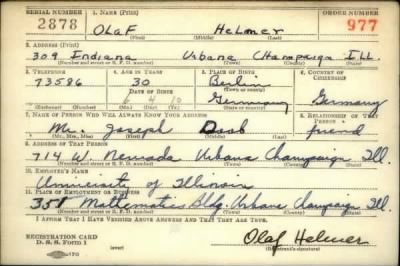 SERIAL NUMBER 1. NAME (Print) ORDER NUMBER
2878 OLaF HeLmer 977
(First) (Middle) (Last)
2. ADDRESS (Print)
309 Indiana Urbana Champaign ILL.
(Number and street or R. F. D. number) (Town) (County) (State)
3. TELEPHONE 4. AGE IN YEARS 5. PLACE OF BIRTH 6. COUNTRY OF CITIZENSHIP
73586 30 Berlin
DATE OF BIRTH (Town or county)
6 4 10 Germany Germany
(Mo.) (Day) (Yr.) (State or country)
7. NAME OF PERSON WHO WILL ALWAYS KNOW YOUR ADDRESS 8. RELATIONSHIP OF THAT PERSON
Mr. Joseph Doob friend
(Mr., Mrs., Miss) (First) (Middle) (Last)
9. ADDRESS OF THAT PERSON
714 W Nevada Urbana Champaign Ill.
(Number and street or R. F. D. number) (Town) (County) (State)
10. EMPLOYER'S NAME
University of Illinois
11. PLACE OF EMPLOYMENT OR BUSINESS
358 Mathematics Bldg. Urbana Champaign Ill.
(Number and street or R. F. D. number) (Town) (County) (State)
I AFFIRM THAT I HAVE VERIFIED ABOVE ANSWERS AND THAT THEY ARE TRUE.
REGISTRATION CARD
D. S. S. Form 1 Olaf Helmer
(Registrant's signature)